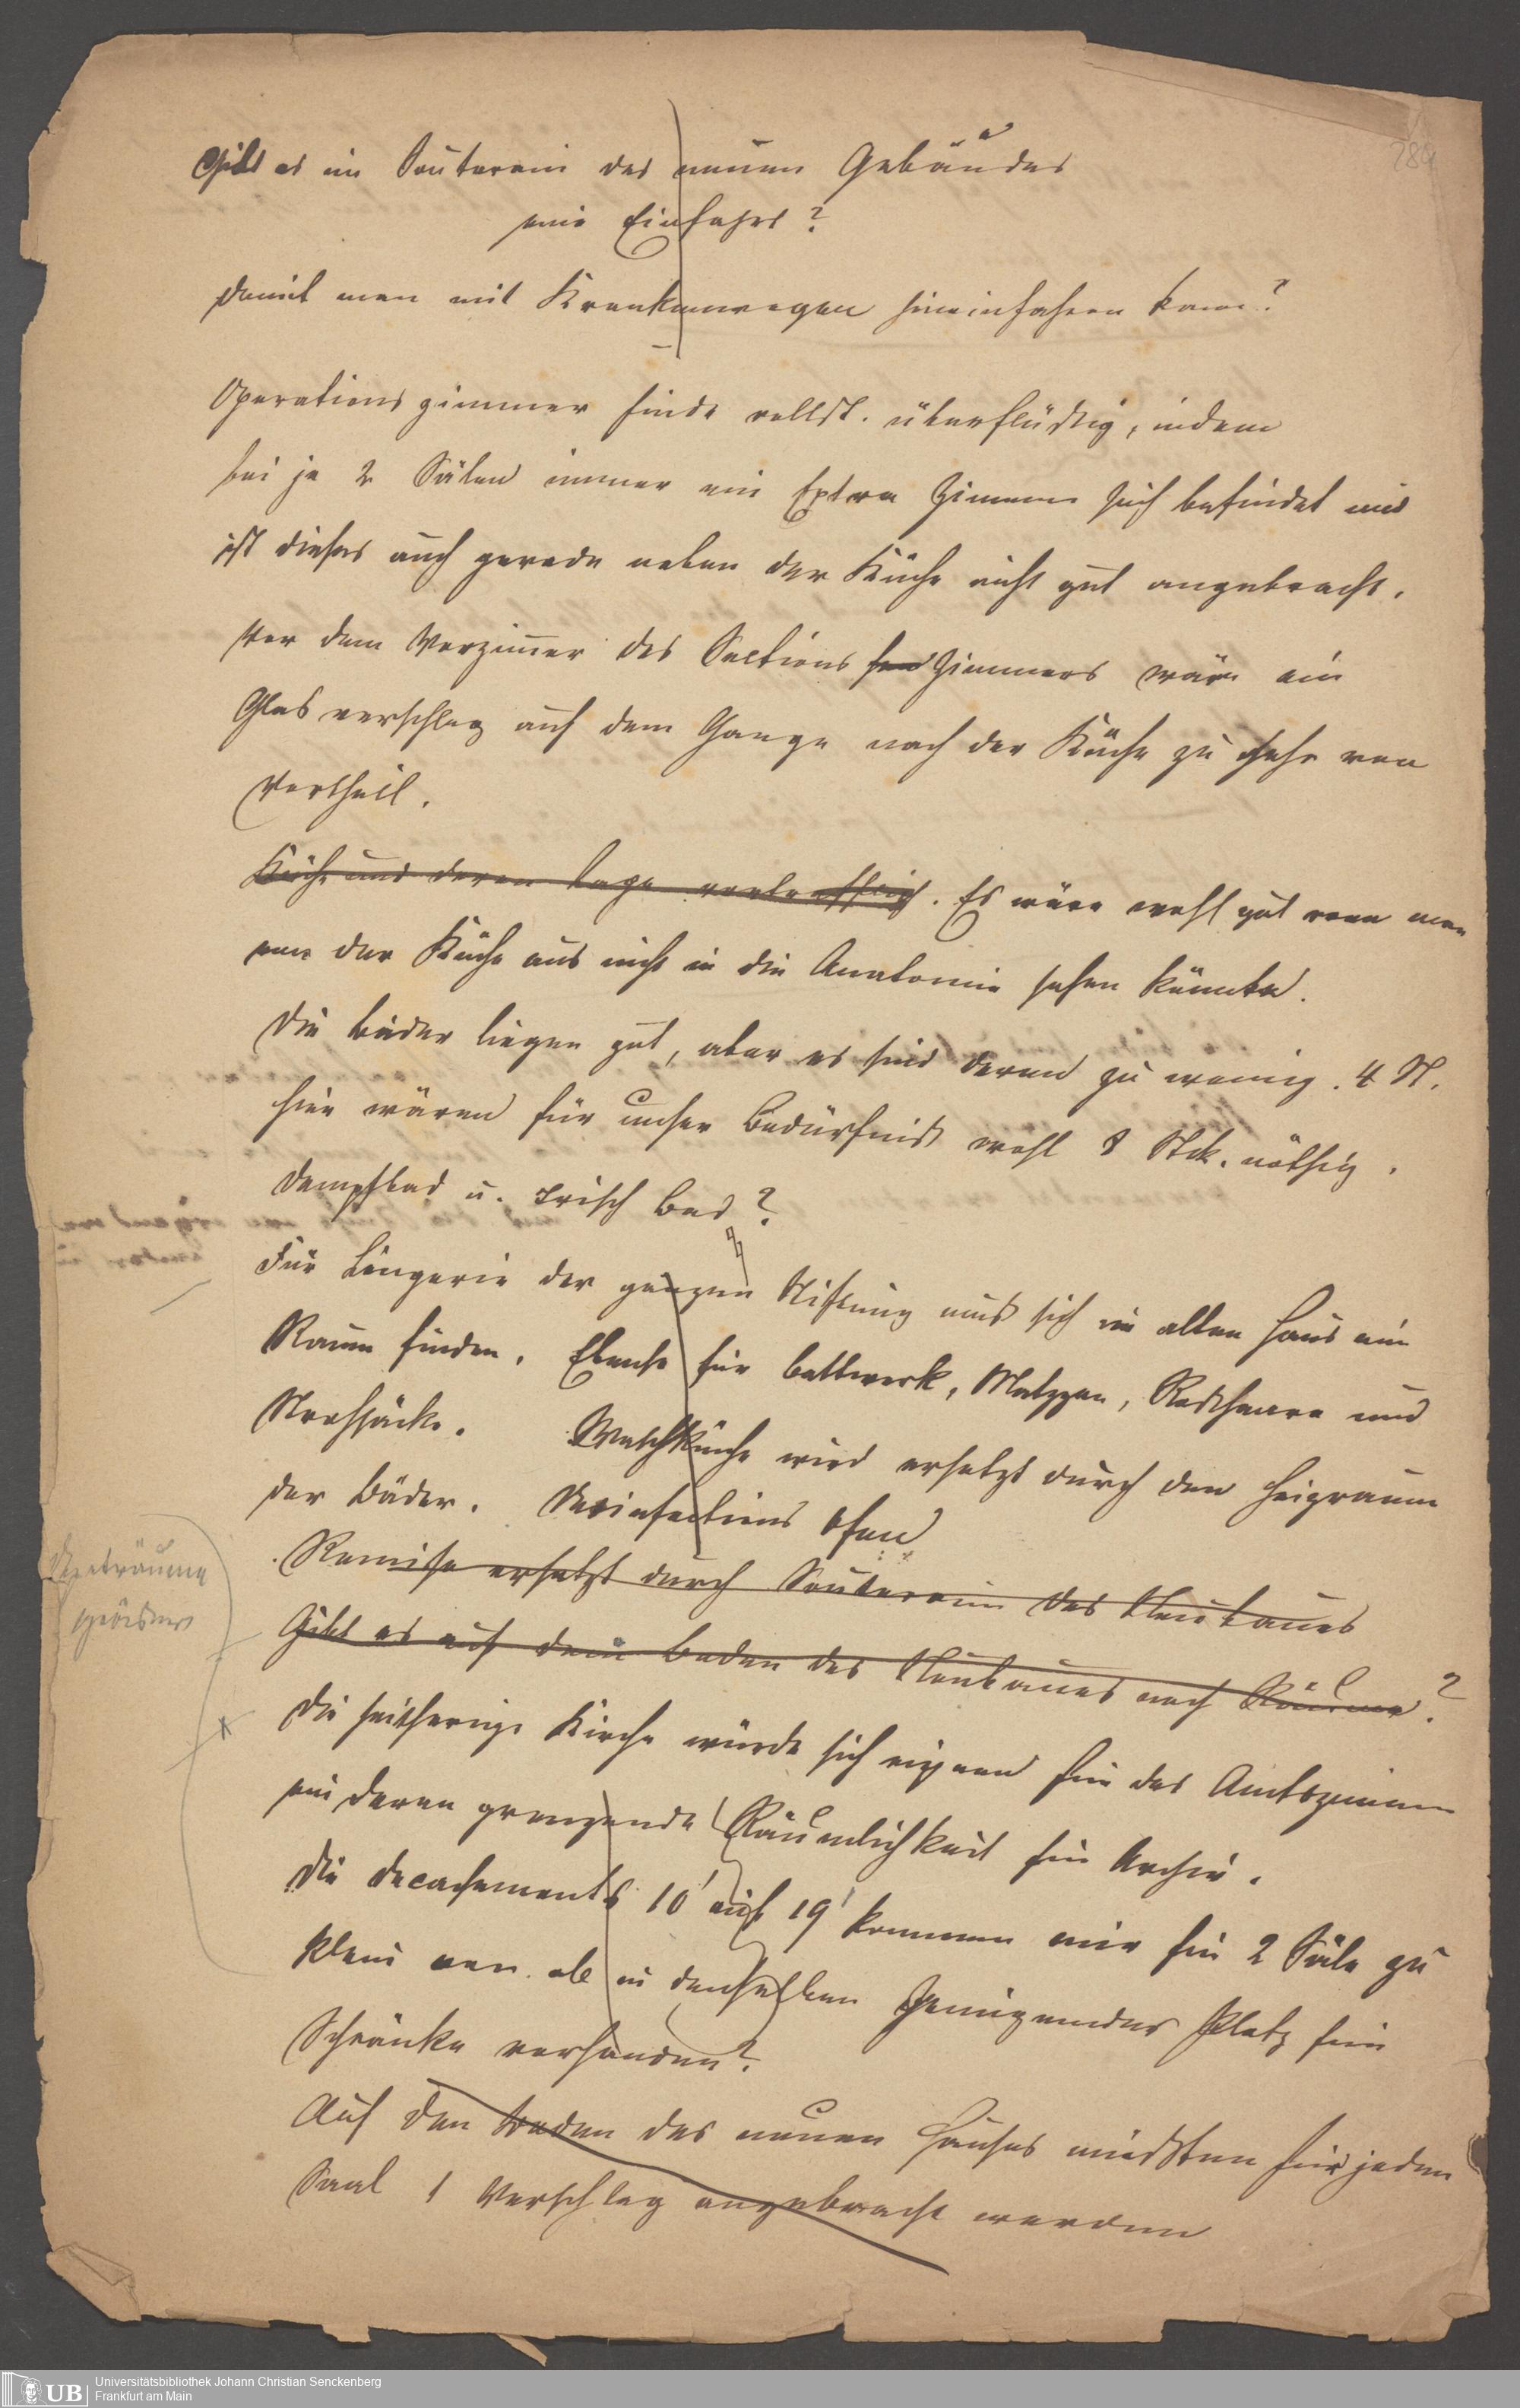 289
Gibt es im Souterain des neuen Gebäudes
eine Einfahrt?
damit man mit Krankenwagen hineinfahren kann?
Operationszimmer finde vollst. überflüßig, indem
bei je 2 Sälen immer ein Extra Zimmer sich befindet und
ist dieses auch gerade neben der Küche nicht gut angebracht.
Vor dem Vorzimmer des Sections Zimmers wäre ein
Glasverschlag auf dem Gange nach der Küche zu sehr von
Vortheil.
Küche und deren Lage vortrefflich. Es wäre wohl gut wenn man
von der Küche aus nicht in die Anatomie sehen könnte.
Die Bäder liegen gut, aber es sind deren zu wenig. 4 St.
hier wären für unser Bedürfniß wohl 8 Stck. nöthig.
Dampfbad u. Irisch Bad?
Für Lingerie der ganzen Stiftung muß sich im alten Haus ein
Raum finden. Ebenso für Bettwerk, Matzzen, Roßhaare und
Strohsäcke. Waschküche wird ersetzt durch den Heizraum
der Bäder. Desinfections Ofen
Remise ersetzt durch Souterain des Neubaues
Gibt es auf dem Boden des Neubaues noch Räume?
Die seitherige Kirche würde sich eignen für das Amtszimmer
ein daran grenzende Räumlichkeit für Archiv.
Die Decachements 10' auf 19' kommen mir für 2 Säle zu
klein vor. ob in denselben genügender Platz für
Schränke vorhanden?
Auf den Boden des neuen Hauses müßten für jeden
Saal 1 Verschlag angebracht werden
UB
Universitätsbibliothek Johann Christian Senckenberg
Frankfurt am Main